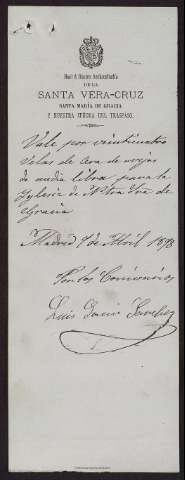 Real é Ilustre Archicofradía
DE LA
SANTA VERA-CRUZ
SANTA MARÍA DE GRACIA
Y NUESTRA SEÑORA DEL TRASPASO.
Vale por veinticuatro
Velas de Cera de
de media libra para la
Yglesia de Ntra Sra de
Gracia
Madrid 7 de Abril 1898
Por los Comisarios
Luis